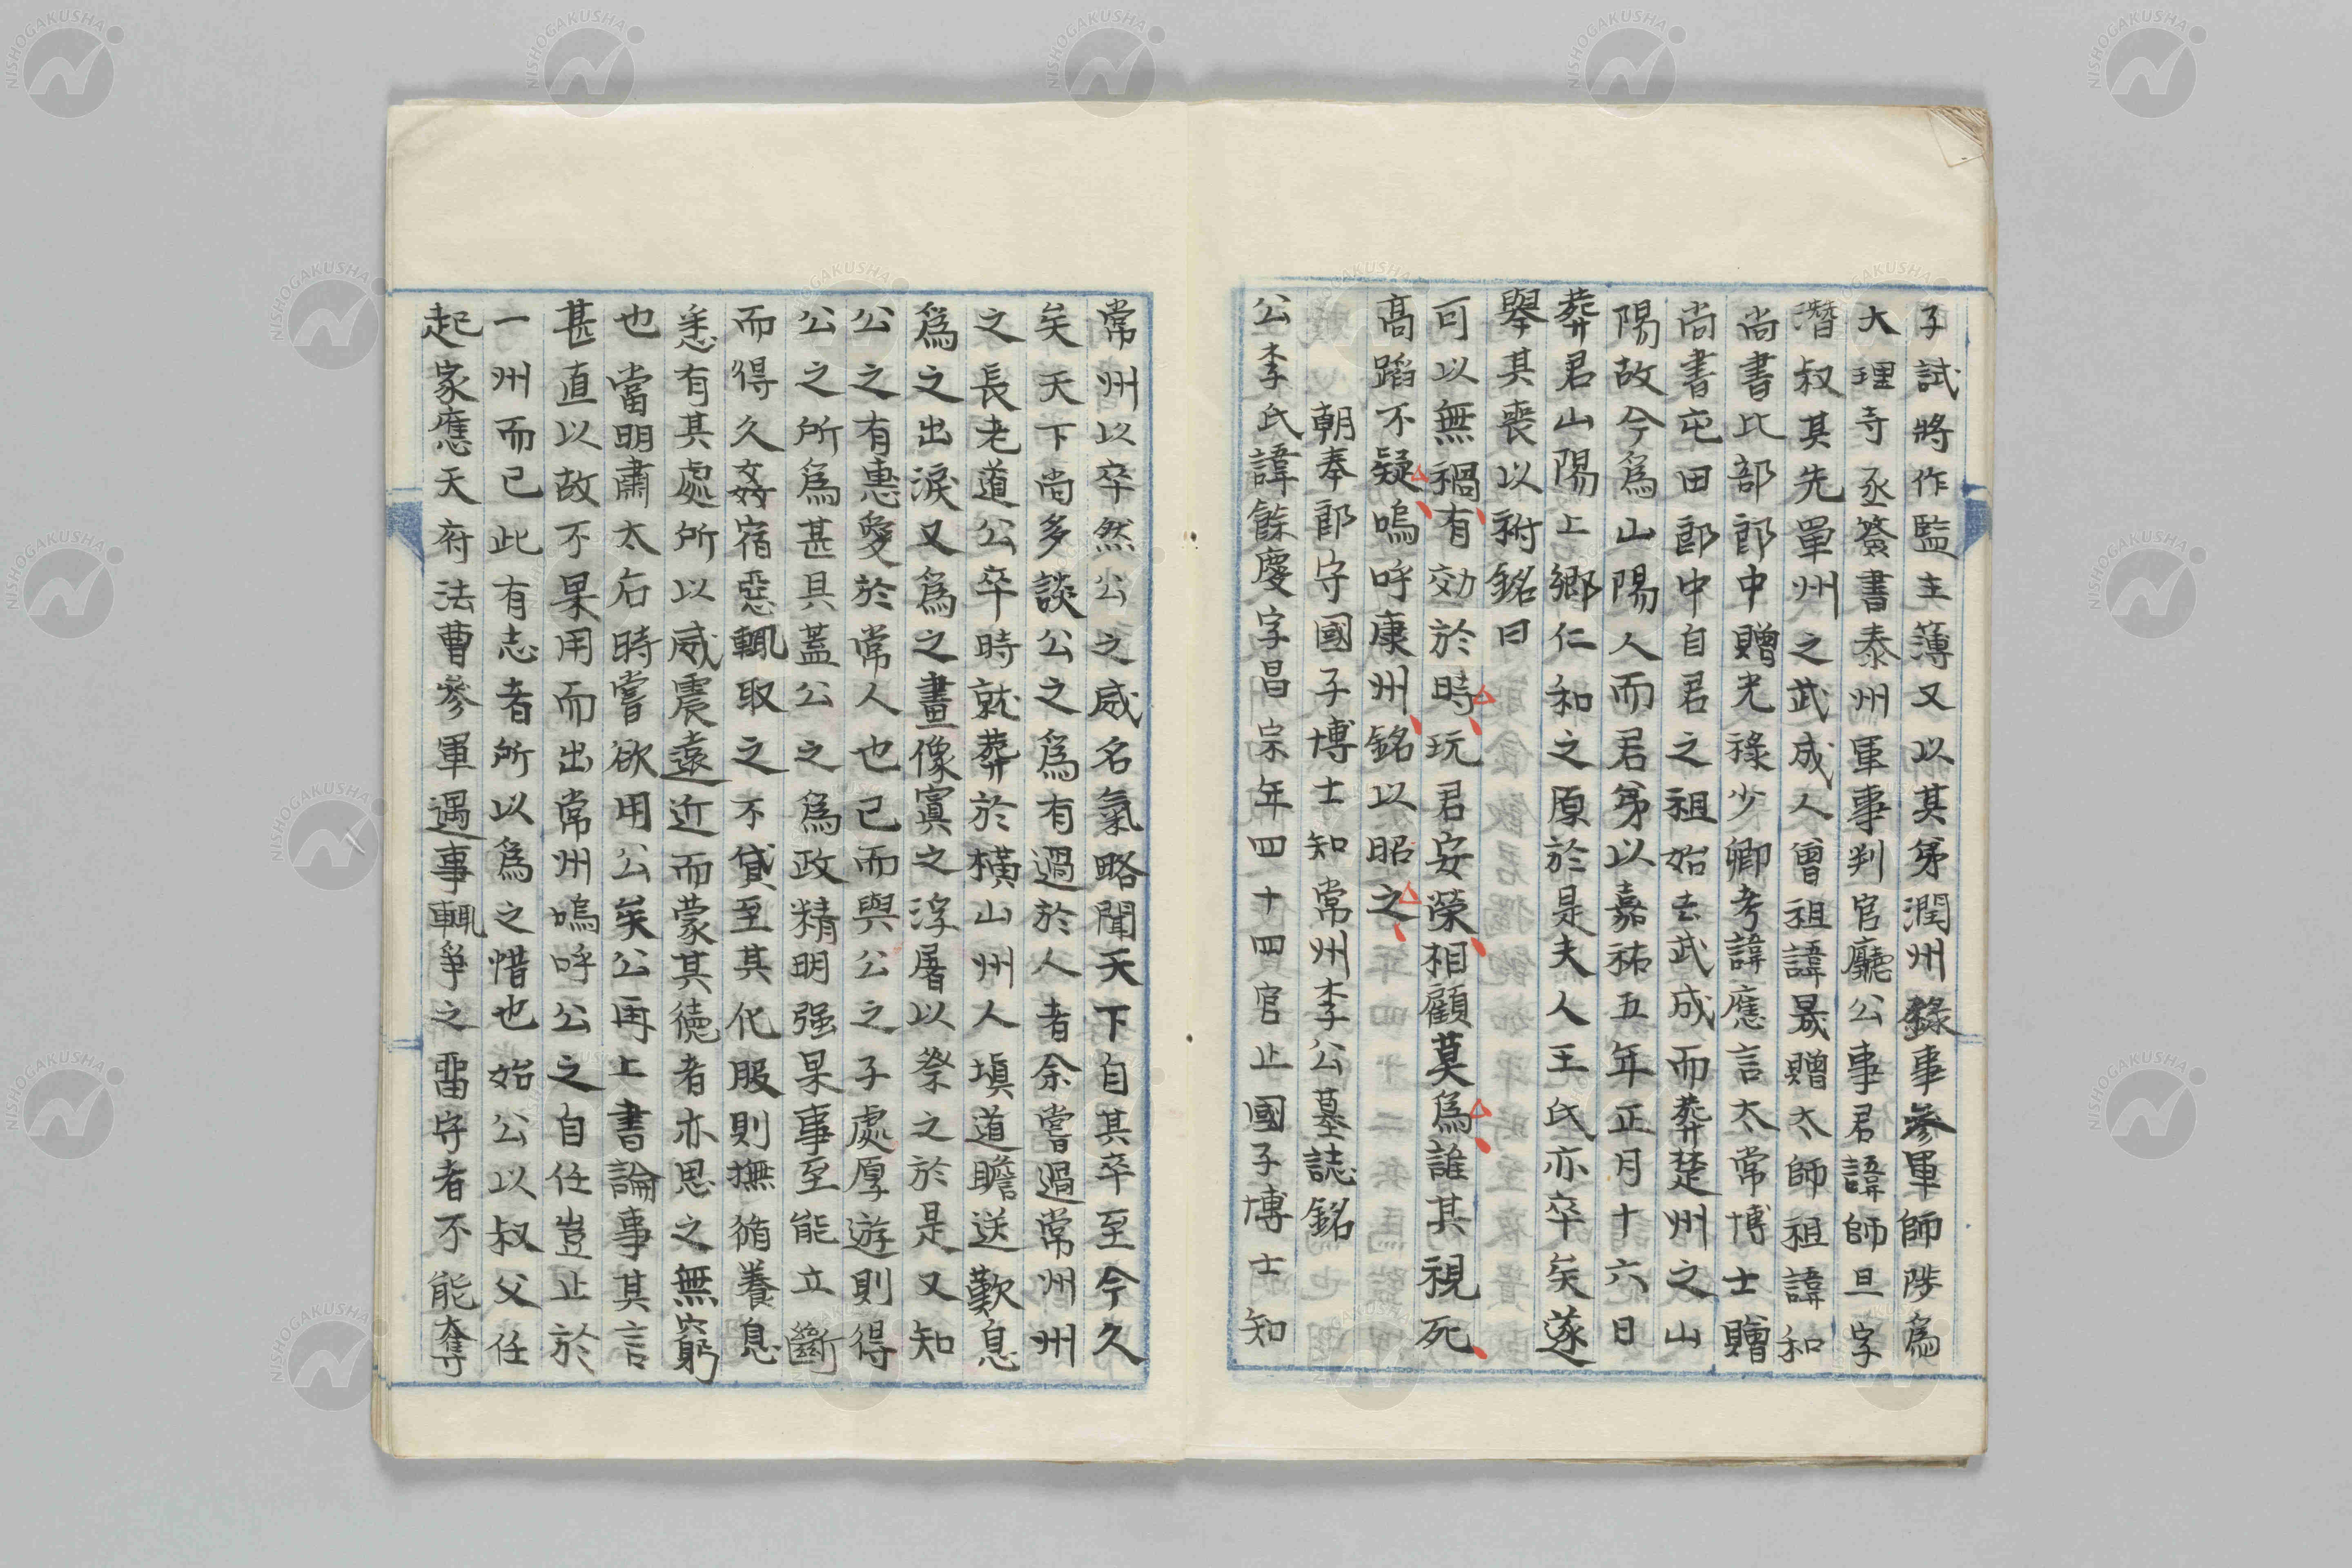 子試將作監主薄又以其弟潤州錄事參軍師陟爲
大理寺丞簽書泰州軍事判官廳公事君諱師旦字
潛叔其先單州之武成人曾祖諱晟贈太師祖諱和
尚書比部郎中贈光祿少卿考諱應言太常博士贈
尚書屯田郎中自君之祖始去武成而葬楚州之山
陽故今爲山陽人而君弟以嘉祐五年正月十六日
葬君山陽上鄉仁和之原於是夫人王氏亦卒矣遂
舉其喪以祔銘曰
可以無禍有効於時玩君安榮相顧莫爲誰其視死
高蹈不疑嗚呼康州銘以昭之
朝奉郎守國子博士知常州李公墓誌銘
公李氏諱餘慶字昌宗年四十四官止國子博士知
常州以卒然公之威名氣略聞天下自其卒至今久
矣天下尚多談公之爲有過於人者余嘗過常州州
之長老道公卒時就葬於橫山州人塡道瞻送歎息
爲之出淚又爲之畫像寘之浮屠以祭之於是又知
公之有惠愛於常人也已而與公之子處厚遊則得
公之所爲甚具蓋公之爲政精明强果事至能立斷
而得久姦宿惡輒取之不貸至其化服則撫循養息
悉有其處所以威震遠近而蒙其德者亦思之無窮
也當明肅太后時嘗欲用公矣公再上書論事其言
甚直以故不果用而出常州嗚呼公之自任豈止於
一州而已此有志者所以爲之惜也始公以叔父任
起家應天府法曹參軍遇事輒爭之畱守者不能奪
NISHOGAKUSHA